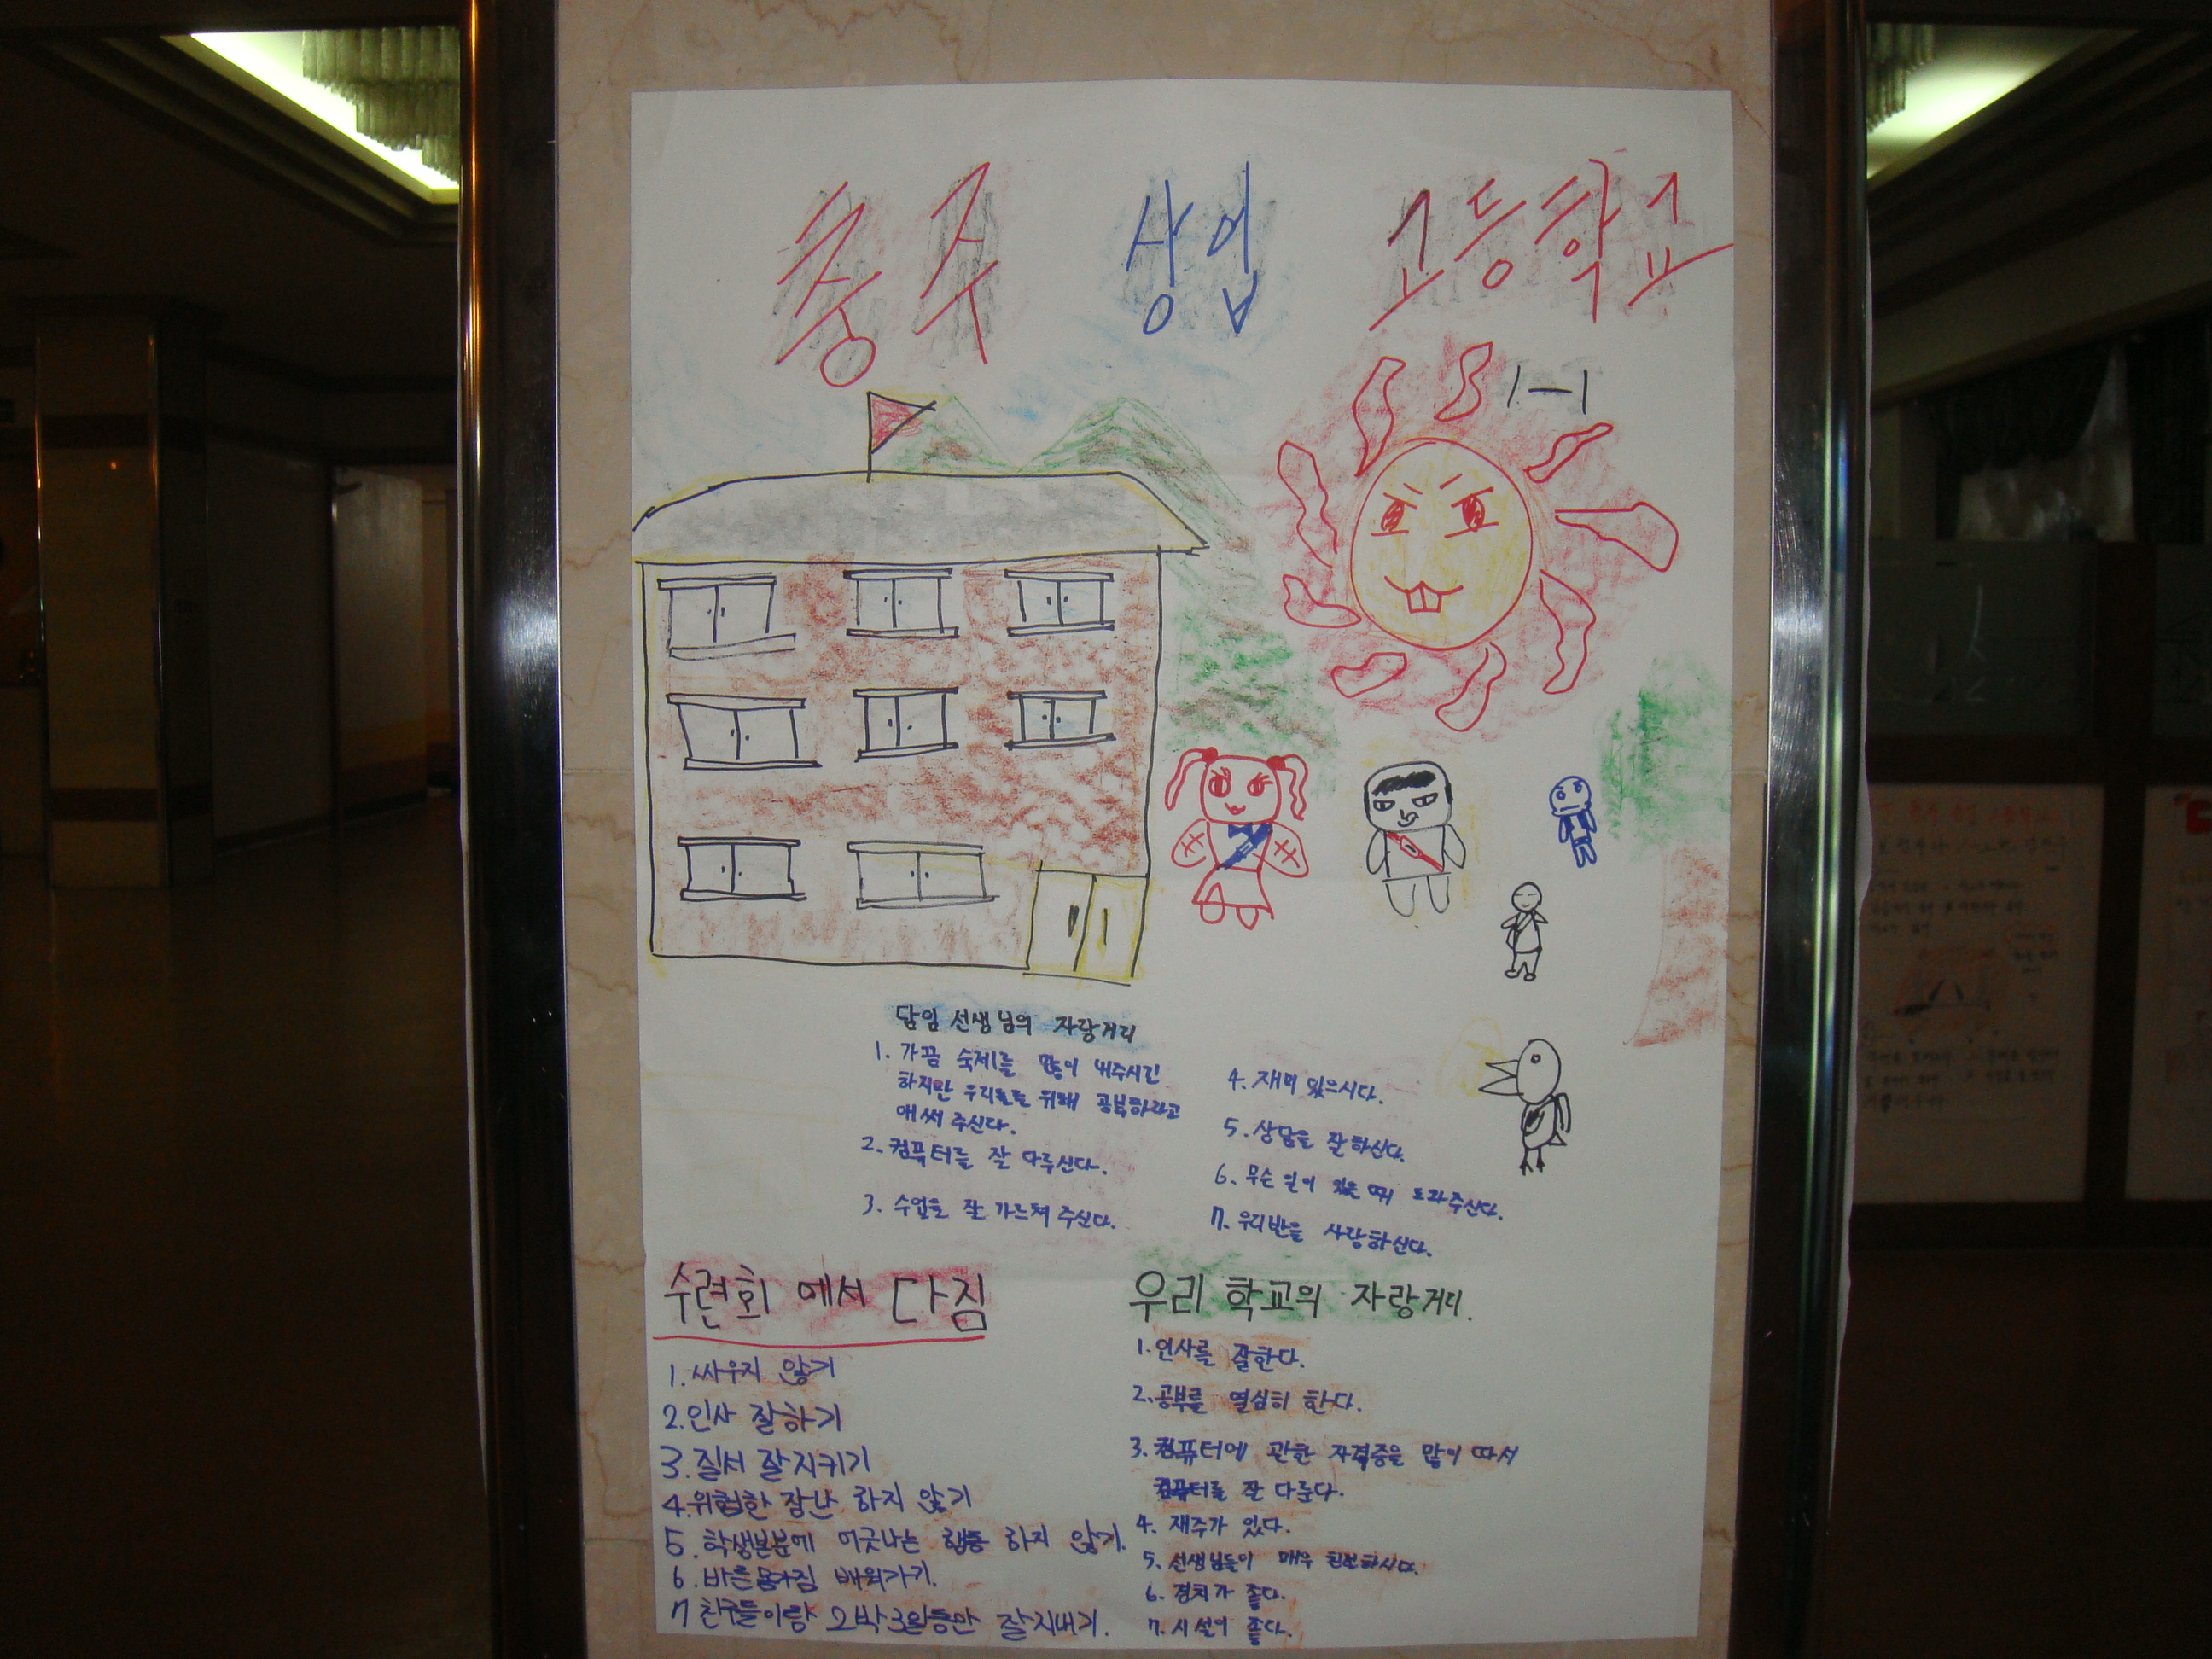 충주 상업 고등학교
1-1
담임 선생님의 자랑거리
1. 가끔 숙제를 많이 내주시긴
하지만 우리들을 위해 공부하라고
애써 주신다.
2. 컴퓨터를 잘 다루신다.
3. 수업을 잘 가르쳐 주신다.
4. 재미 있으시다.
5. 상담을 잘 하신다.
6. 무슨 일이 있을 때 도와주신다.
7. 우리반을 사랑하신다.
수련회 에서 다짐
1. 싸우지 않기
2. 인사 잘하기
3. 질서 잘 지키기
4. 위험한 장난 하지 않기
5. 학생본분에 어긋나는 행동 하지 않기.
6. 바른 몸가짐 배워가기.
7 친구들이랑 2박3일동안 잘 지내기.
우리 학교의 자랑거리.
1. 인사를 잘한다.
2. 공부를 열심히 한다.
3. 컴퓨터에 관한 자격증을 많이 따서
컴퓨터를 잘 다룬다.
4. 재주가 있다.
5. 선생님들이 매우 친절하시다.
6. 경치가 좋다.
7. 시설이 좋다.